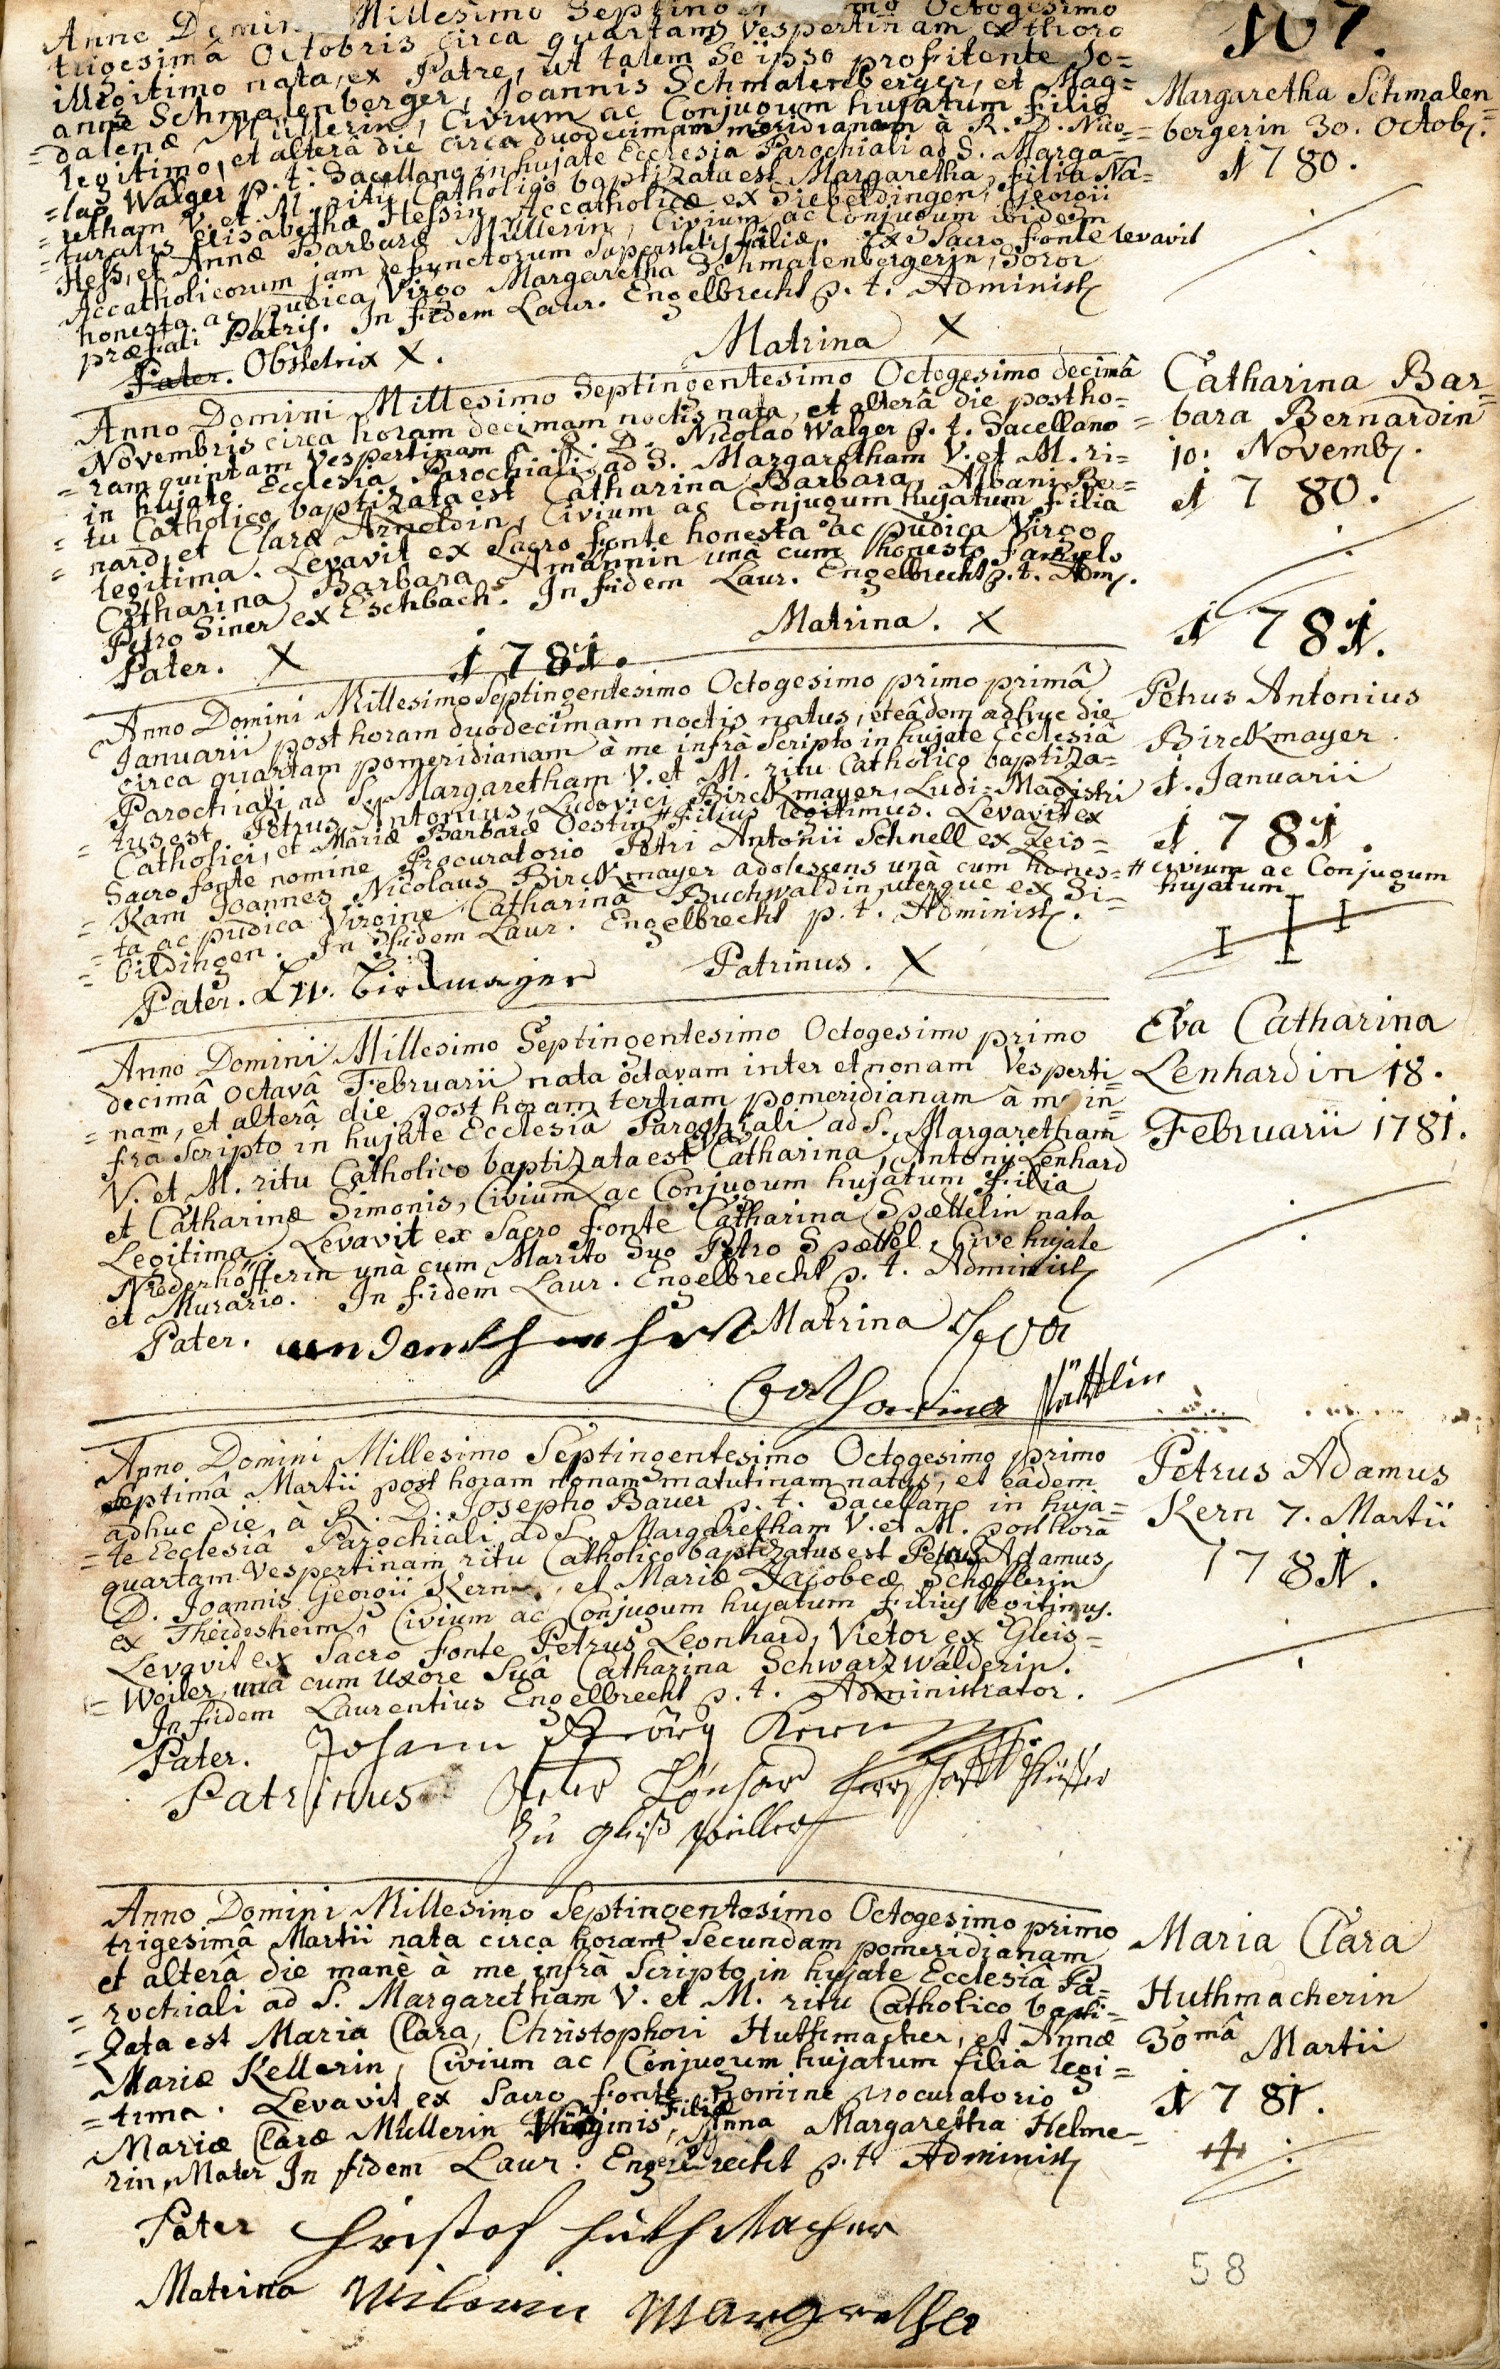 107.
Anno Domin Millesimo Septin mo Octogesimo
trigesimâ Octobris circa quartam Vespertinam ex thoro
illegitimo nata, ex Patre, ut talem Se ipso profitente Jo=
anne Schmalenberger, Joannis Schmalenberger, et Mag=
=dalenæ Müllerin, Civium ac Conjugum hujatum filio
legitimo, et alterâ die circa duodecimam meridianam à R. D. Nico=
=lao Walger p. t. Sacellano in hujate Ecclesia Parochiali ad S. Marga=
=retham V. et M. ritu Catholico baptizata est Margaretha, filia Na=
=turalis Elisabethæ Hessin Accatholicæ ex Siebeldingen, Georgii
Hess, et Annæ Barbaræ Müllerin, Civium ac Conjugum ibidem
Accatholicorum jam defunctorum Superstitis filiæ. Ex Sacro fonte levavit
honesta ac pudica Virgo Margaretha Schmalenbergerin, Soror
præfati Patris. In fidem Laur. Engelbrecht p. t. Administ.
Pater. Obstetrix X. Matrina X
Margaretha Schmalen=
=bergerin 30. Octob.
1780.
Anno Domini Millesimo Septingentesimo Octogesimo decimâ
Novembris circa horam decimam noctis nata, et alterâ die post ho=
=ram quintam Vespertinam à R. D. Nicolao Walger p. t. Sacellano
in hujate Ecclesia Parochiali ad S. Margaretham V. et M. ri=
=tu Catholico baptizata est Catharina Barbara, Albani Be=
=nard, et Claræ Arnoldin, Civium ac Conjugum hujatum filia
legitima. Levavit ex Sacro fonte honesta ac pudica Virgo
Catharina Barbara Amannin unà cum honesto famulo
Petro Siner ex Eschbach. In fidem Laur. Engelbrecht p. t. Adm.
Pater. X Matrina. X
Catharina Bar=
=bara Bernardin
10. Novemb.
1780.
1781.
1781.
Anno Domini Millesimo Septingentesimo Octogesimo primo primâ
Januarii post horam duodecimam noctis natus, et eâdem adhuc die
circa quartam pomeridianam à me infrà Scripto in hujate Ecclesiâ
Parochiali ad S. Margaretham V. et M. ritu Catholico baptiza=
=tus est Petrus Antonius, Ludovici Birckmayer, Ludi-Magistri
Catholici, et Mariæ Barbaræ Oestin # filius legitimus. Levavit ex
Sacro fonte nomine Procuratorio Petri Antonii Schnell ex Zeis=
=kam Joannes Nicolaus Birckmayer adolescens unà cum hones=
=ta ac pudica Virgine Catharina Buchwaldin uterque ex Si=
=bildingen. In fidem Laur. Engelbrecht p. t. Administ.
Pater. Lw. Birckmayer Patrinus. X
Petrus Antonius
Birckmayer.
1. Januarii
1781.
# civium ac Conjugum
hujatum
Anno Domini Millesimo Septingentesimo Octogesimo primo
decimâ Octavâ Februarii nata octavam inter et nonam Vesperti=
=nam, et alterâ die post horam tertiam pomeridianam à me in=
fra Scripto in hujate Ecclesiâ Parochiali ad S. Margaretham
V. et M. ritu Catholico baptizata est Eva Catharina, Antonij Lenhard
et Catharinæ Simonis, Civium ac Conjugum hujatum filia
Legitima. Levavit ex Sacro fonte Catharina Spættelin nata
Niederhöfferin unà cum Marito Suo Petro Spættel, Cive hujate
et Murario. In fidem Laur. Engelbrecht p. t. Administ.
Pater. Matrina Eva
Catharina Spättlin
Eva Catharina
Lenhardin 18.
Februarii 1781.
Anno Domini Millesimo Septingentesimo Octogesimo primo
Septimâ Martii post horam nonam matutinam natus, et eâdem
adhuc die, à R. D. Josepho Bauer p. t. Sacellano in huja=
=te Ecclesiâ Parochiali ad S. Margaretham V. et M. post horâ
quartam Vespertinam ritu Catholico baptizatus est Petrus Adamus,
D. Joannis Georgii Kern, et Mariæ Jacobeæ Schæfferin
ex Theidesheim, Civium ac Conjugum hujatum filius legitimus.
Levavit ex Sacro fonte Petrus Leonhard, Vietor ex Gleis=
=Weiler unà cum Uxore Suâ Catharina Schwarzwälderin.
In fidem Laurentius Engelbrecht p. t. Administrator.
Pater. Johann Georg Kern
Patrinus Peter Lönhard
zu gleiß weiller
Petrus Adamus
Kern 7. Martii
1781.
Anno Domini Millesimo Septingentesimo Octogesimo primo
trigesimâ Martii nata circa horam Secundam pomeridianam
et alterâ die manè à me infrà Scripto in hujate Ecclesiâ Pa=
=rochiali ad S. Margaretham V. et M. ritu Catholico bapti=
=zata est Maria Clara, Christophori Huthmacher, et Annæ
Mariæ Kellerin, Civium ac Conjugum hujatum filia legi=
=tima. Levavit ex Sacro fonte nomine procuratorio
Mariæ Claræ Müllerin Virginis, Filiæ Anna Margaretha Helme=
rin, Mater In fidem Laur. Engelbrecht p. t. Administ.
Pater Christof Huthmacher
Matrina Margretha
Maria Clara
Huthmacherin
30mâ Martii
1781.
58